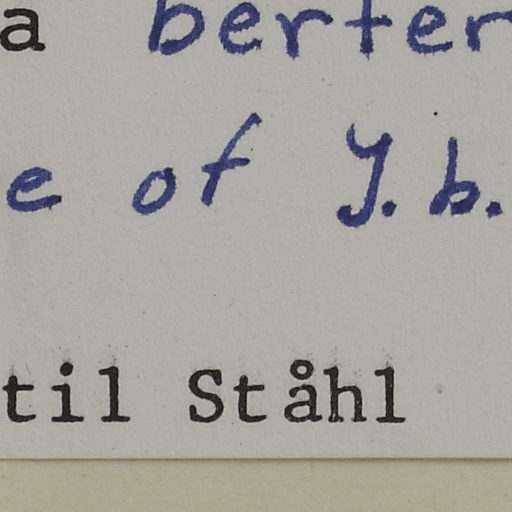 a berter
e of J.b.
til Ståhl